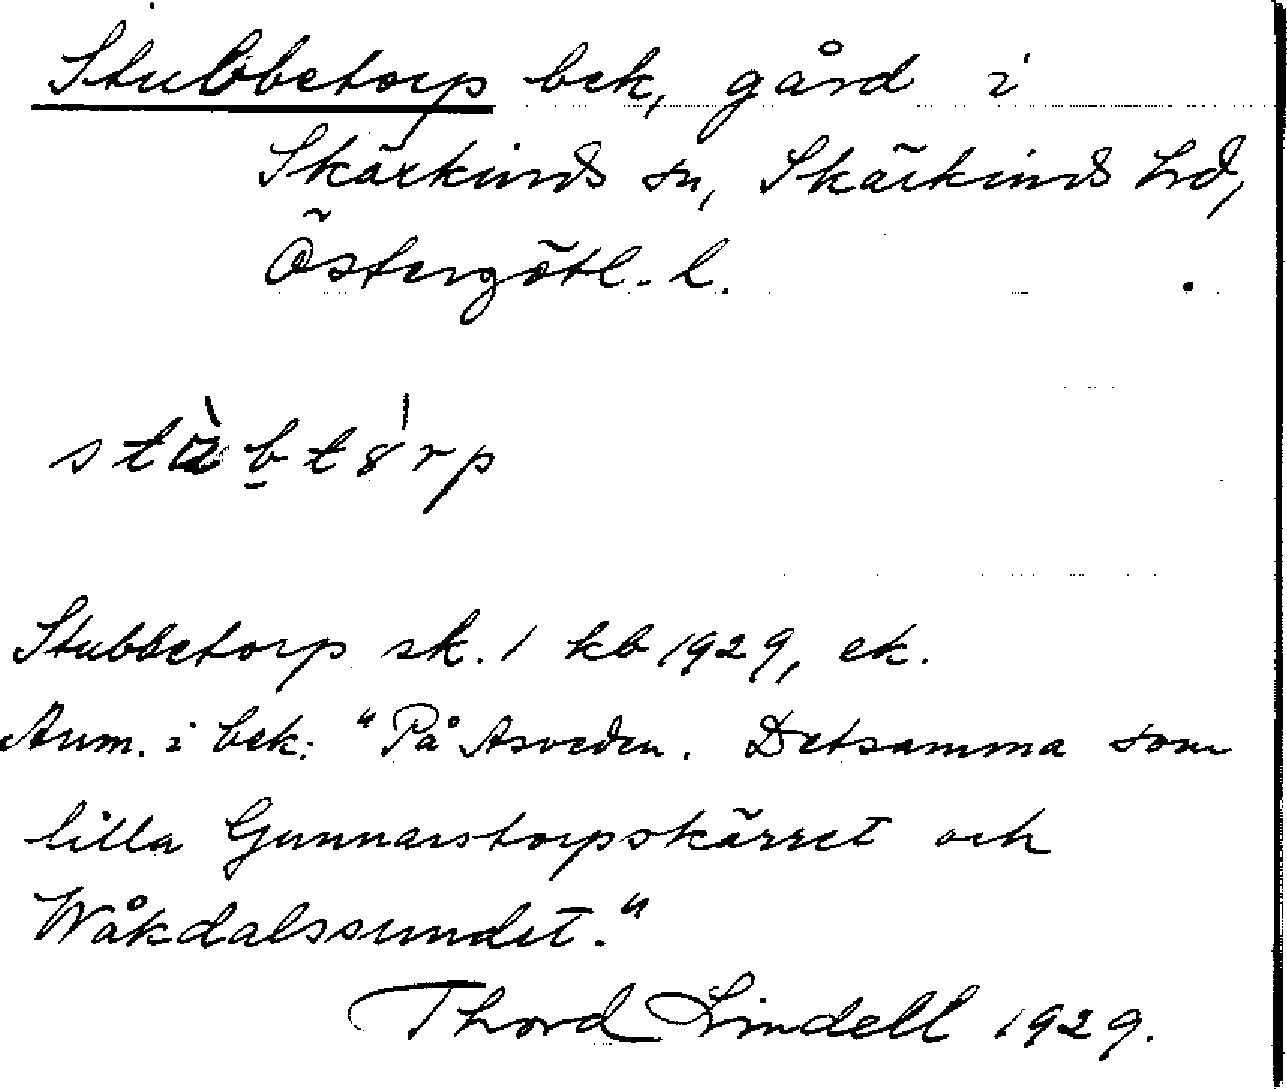 Stubbetorp bek, gård i
Skärkinds sn, Skärkinds hd,
Östergötl. l.
Stubbetorp sk. / kb 1929, ek.
Anm. i bek: "På Asveden. Detsamma som
lilla Gunnarstorpskärret och
Wåkdalssundet."
Thord Lindell 1929.